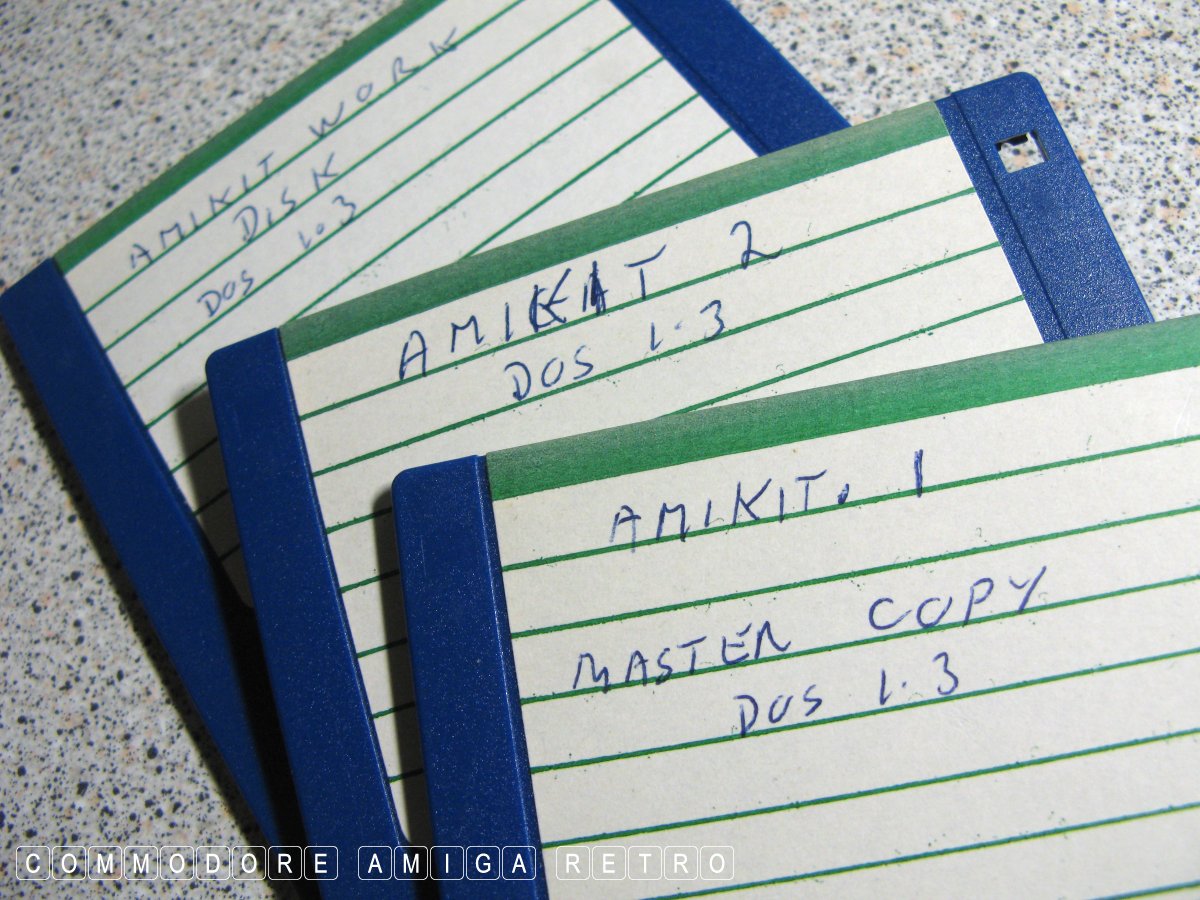 AMIKIT WORK
DISK
DOS 1.3
AMIKIT 2
DOS 1.3
AMIKIT. 1
MASTER COPY
DOS 1.3
COMMODORE AMIGA RETRO